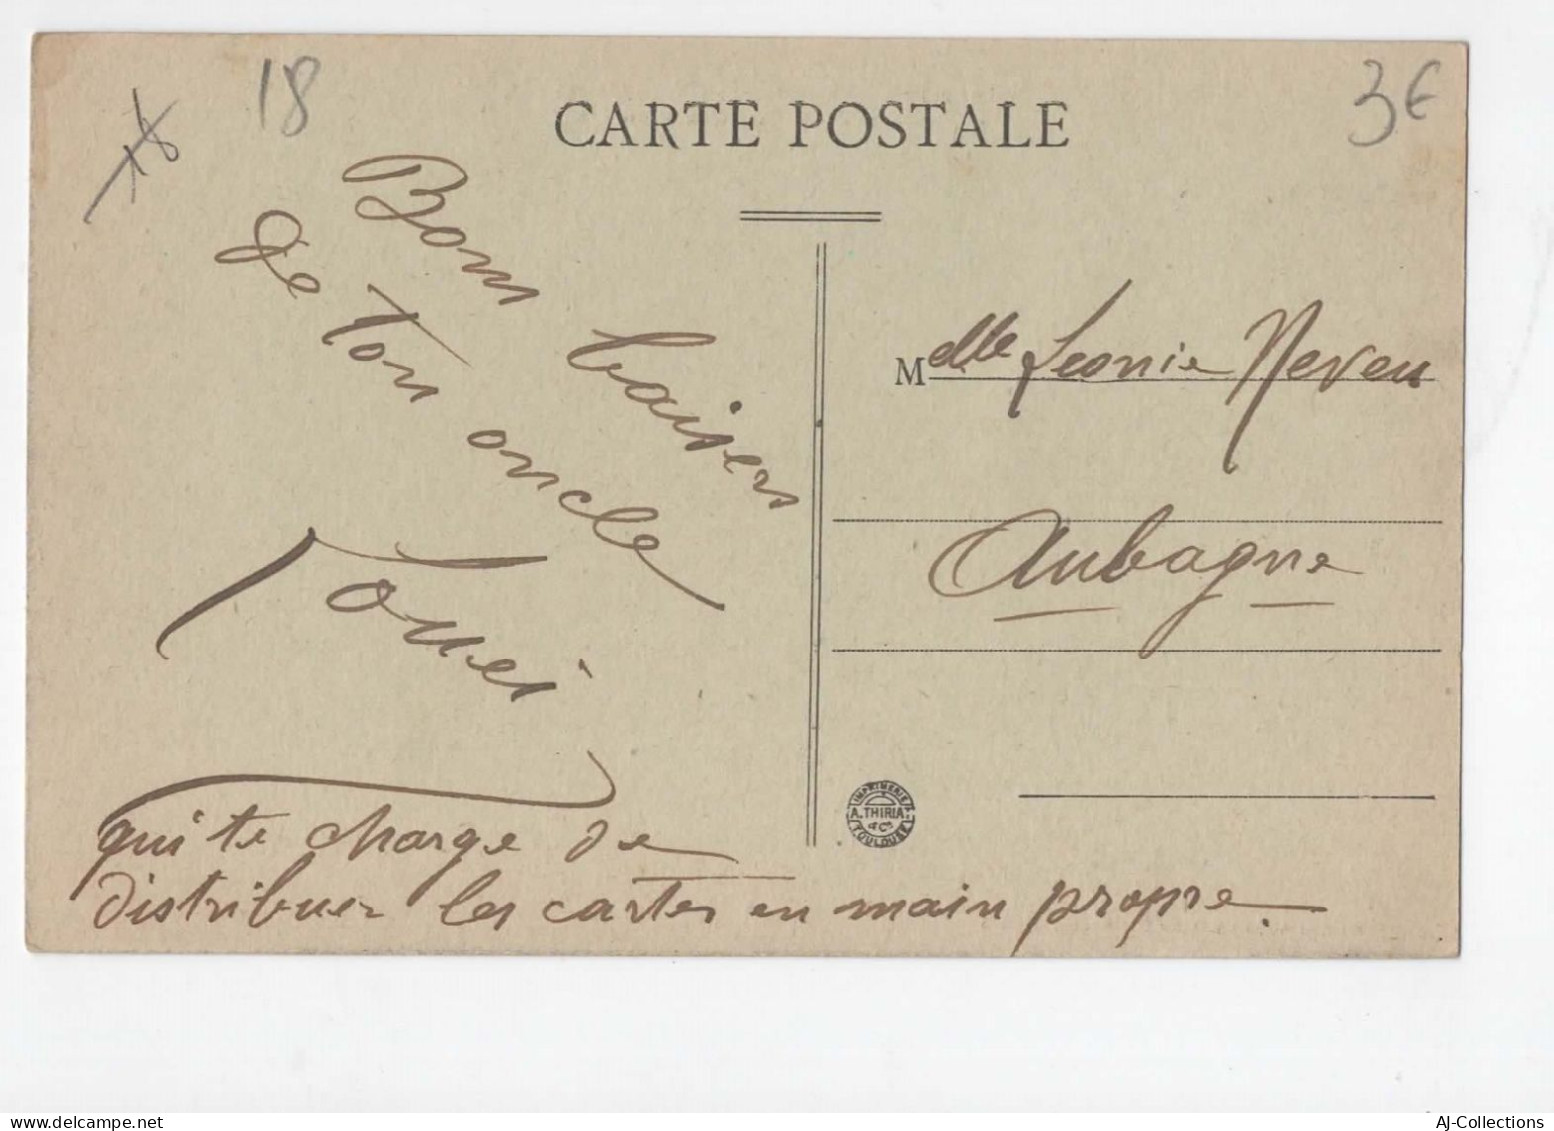 18
18
3€
CARTE POSTALE
Bons baisers
de ton oncle
Louis
qui te charge de
distribuer les cartes en main propre.
Melle Leonie Neveu
Aubagne
IMPRIMERIE
A. THIRIAT
& Cie
TOULOUSE
AJ-Collections